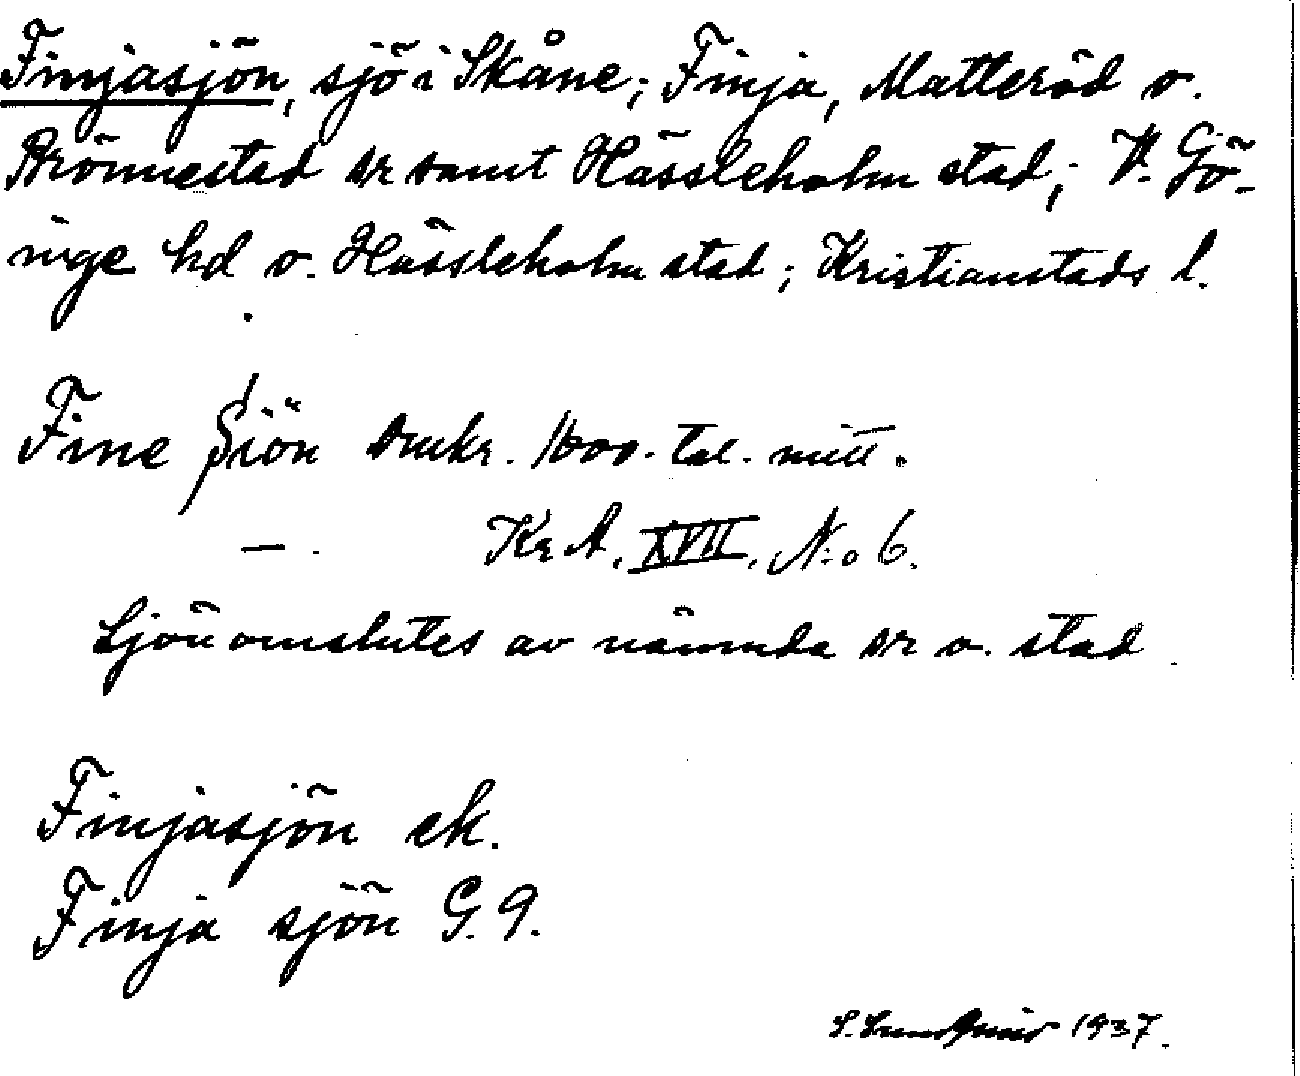 Finjasjön, sjö i Skåne; Finja, Matteröd o.
Brönnestad sr samt Hässleholm stad; V. Gö-
inge hd o. Hässleholm stad; Kristianstads l.
Fine Siön omkr. 1600-tal. mitt.
— . KrA. XVII. N:o 6.
Sjön omslutes av nämnda sr o. stad
Finjasjön ek.
Finja sjön G. 9.
S. Lundqvist 1937.